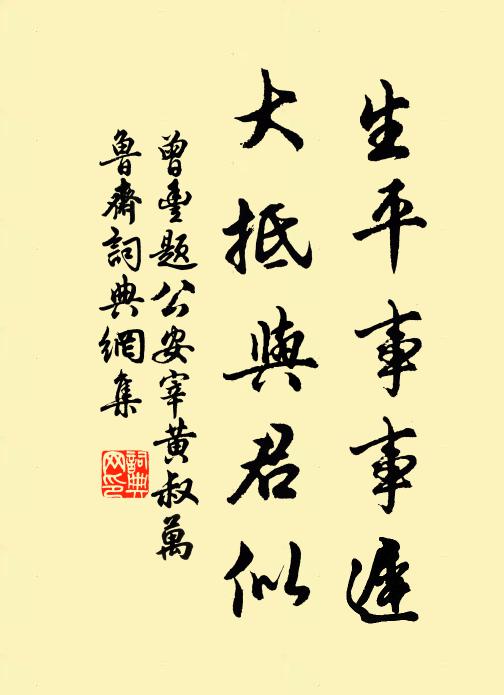 生平事事遲
大抵與君似
曾豐題公安宰黃叔萬
魯齋詞典網集
詞典網印